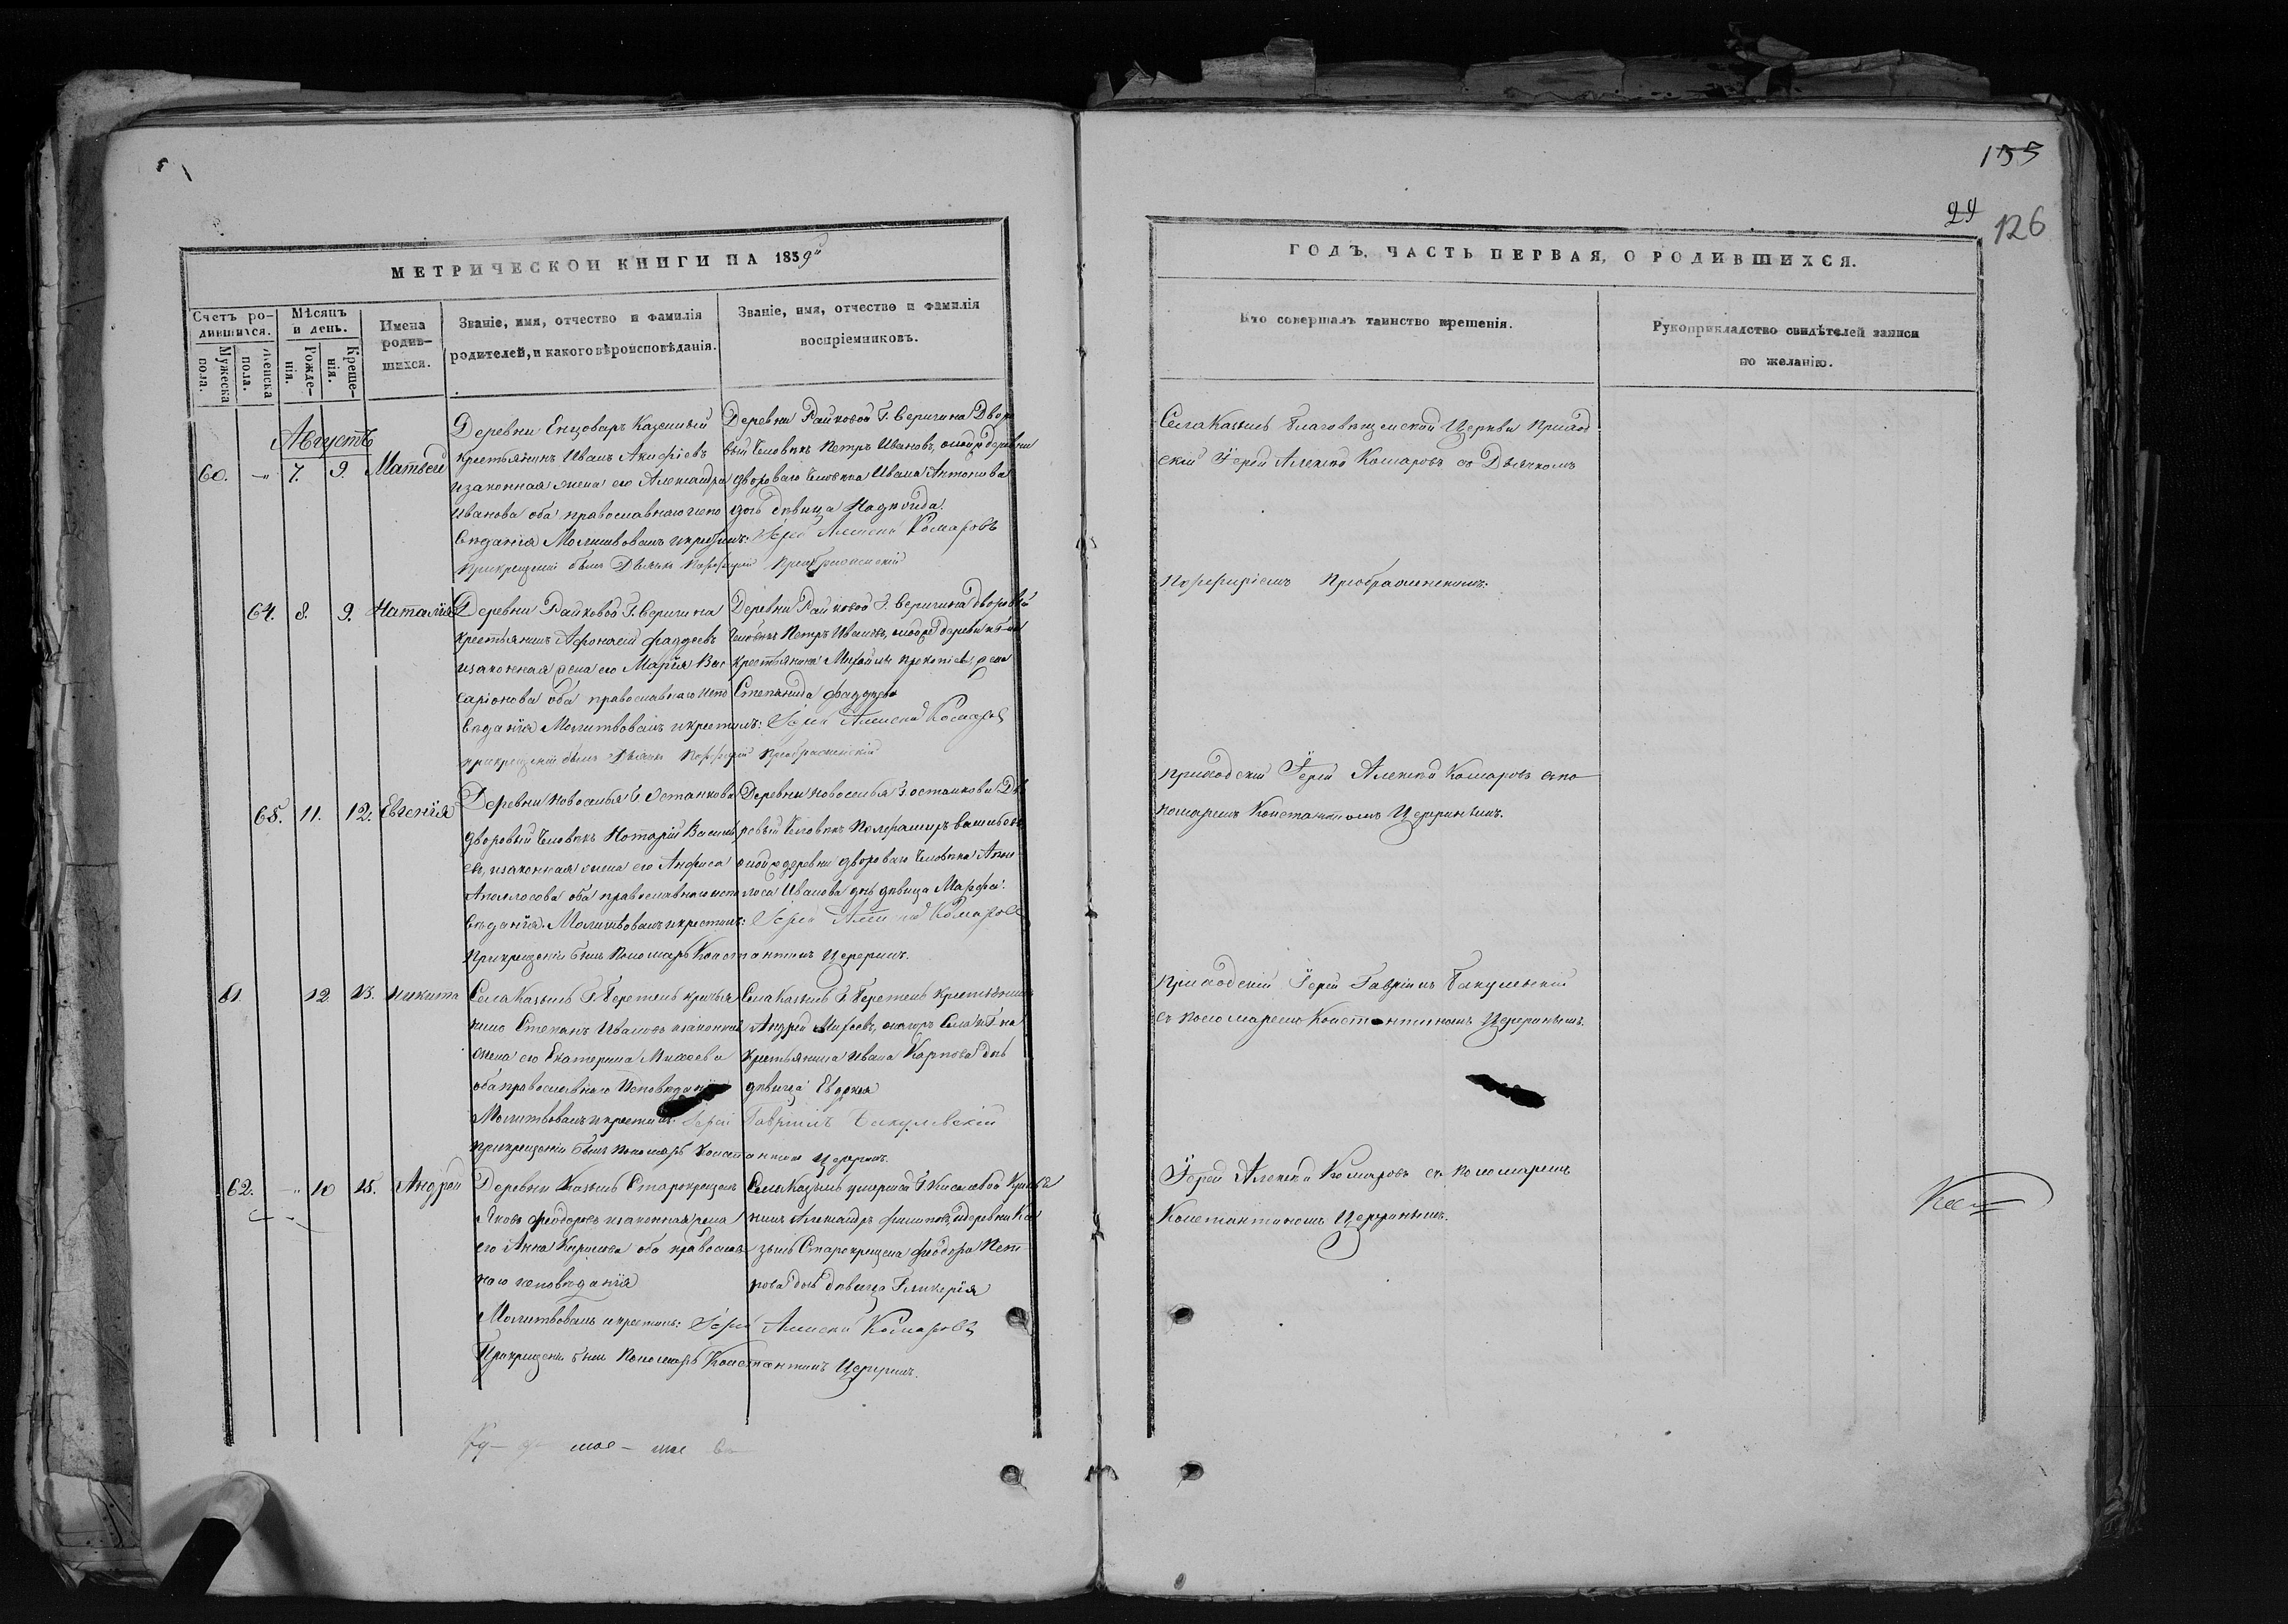 МЕТРИЧЕСКОЙ КНИГИ НА 1859й
Счетъ ро-
дившихся.
Мужеска
пола.
Женска
пола.
Мѣсяцъ
и день.
Рожде-
нія.
Креще-
нія.
Имена
родив-
шихся.
Званіе, имя, отчество и фамилія
родителей, и какого вѣроисповѣданія.
Званіе, имя, отчество и фамилія
воспріемниковъ.
Августъ
60. 7. 9. Матвей
Деревни Енговаръ Казенный
крестьянинъ Иванъ Акифіевъ
и законная жена его Александра
Иванова оба православнаго испо
вѣданія Молитвовалъ и крестилъ: Іерей Алексій Комаровъ
При крещеніи былъ Дьячекъ Порфирій Преображенскій
Деревни Райковой Г. Веригина Дворо
вый человѣкъ Петръ Ивановъ, и той же деревни
двороваго человѣка Ивана Антонова
дочь дѣвица Надежда.
64. 8. 9. Наталія
Деревни Райковой Г. Веригина
крестьянинъ Афонасій Фаддеевъ
и законная жена его Марія Вис
саріонова оба православнаго испо
вѣданія Молитвовалъ и крестилъ: Іерей Алексій Комаровъ
при крещеніи былъ Дьячекъ Порфирій Преображенскій
Деревни Райковой Г. Веригина дворовый
человѣкъ Петръ Ивановъ, и той же деревни
крестьянина Михайлы Прокопіева жена
Степанида Фаддеева
65. 11. 12. Евгенія
Деревни Новоселья Г. Останкова
дворовый человѣкъ Нотарій Василь
евъ, и законная жена его Анфиса
Аполлосова оба православнаго испо
вѣданія. Молитвовалъ и крестилъ: Іерей Алексій Комаровъ
При крещеніи былъ Пономарь Константинъ Цереринъ.
Деревни Новоселья Г. Останкова Дво
ровый человѣкъ Васильевъ
и той же деревни двороваго человѣка Апол
лоса Иванова дочь дѣвица Марфа.
61. 12 13. Никита
Села Казыль Г. Беретель крестья
нинъ Степанъ Ивановъ и законная
жена его Екатерина Михеева
оба православнаго Исповѣданія
Молитвовалъ и крестилъ: Іерей Гавріилъ Бакулевскій
при крещеніи былъ пономарь Константинъ Цереринъ.
Села Казыль Г. Беретель крестьянинъ
Андрей Михеевъ,
крестьянина Ивана Карпова дочь
дѣвица Евдокія
62. 10 15. Андрей
Деревни Казыль Старокрещенъ
Яковъ Феодоровъ и законная жена
его Анна Кирилова оба православ
наго исповѣданія
Молитвовалъ и крестилъ: Іерей Алексій Комаровъ
При крещеніи былъ Пономарь Константинъ Цереринъ.
Села Казыль
Александръ Филиповъ, и деревни Ка
зыль Старокрещена Феодора Пет
рова дочь дѣвица Гликерія
155
29
126
ГОДЪ, ЧАСТЬ ПЕРВАЯ, О РОДИВШИХСЯ.
Кто совершалъ таинство крещенія.
Рукоприкладство свидѣтелей записи
по желанію.
Села Казыль Благовѣщенской Церкви Приход
скій Іерей Алексій Комаровъ съ Дьячкомъ
Порфиріемъ Преображенскимъ.
приходскій Іерей Алексій Комаровъ съ по
номаремъ Константиномъ Цереринымъ.
Приходскій Іерей Гавріилъ Бакулевскій
съ пономаремъ Константиномъ Цереринымъ.
Іерей Алексій Комаровъ съ пономаремъ
Константиномъ Цереринымъ.